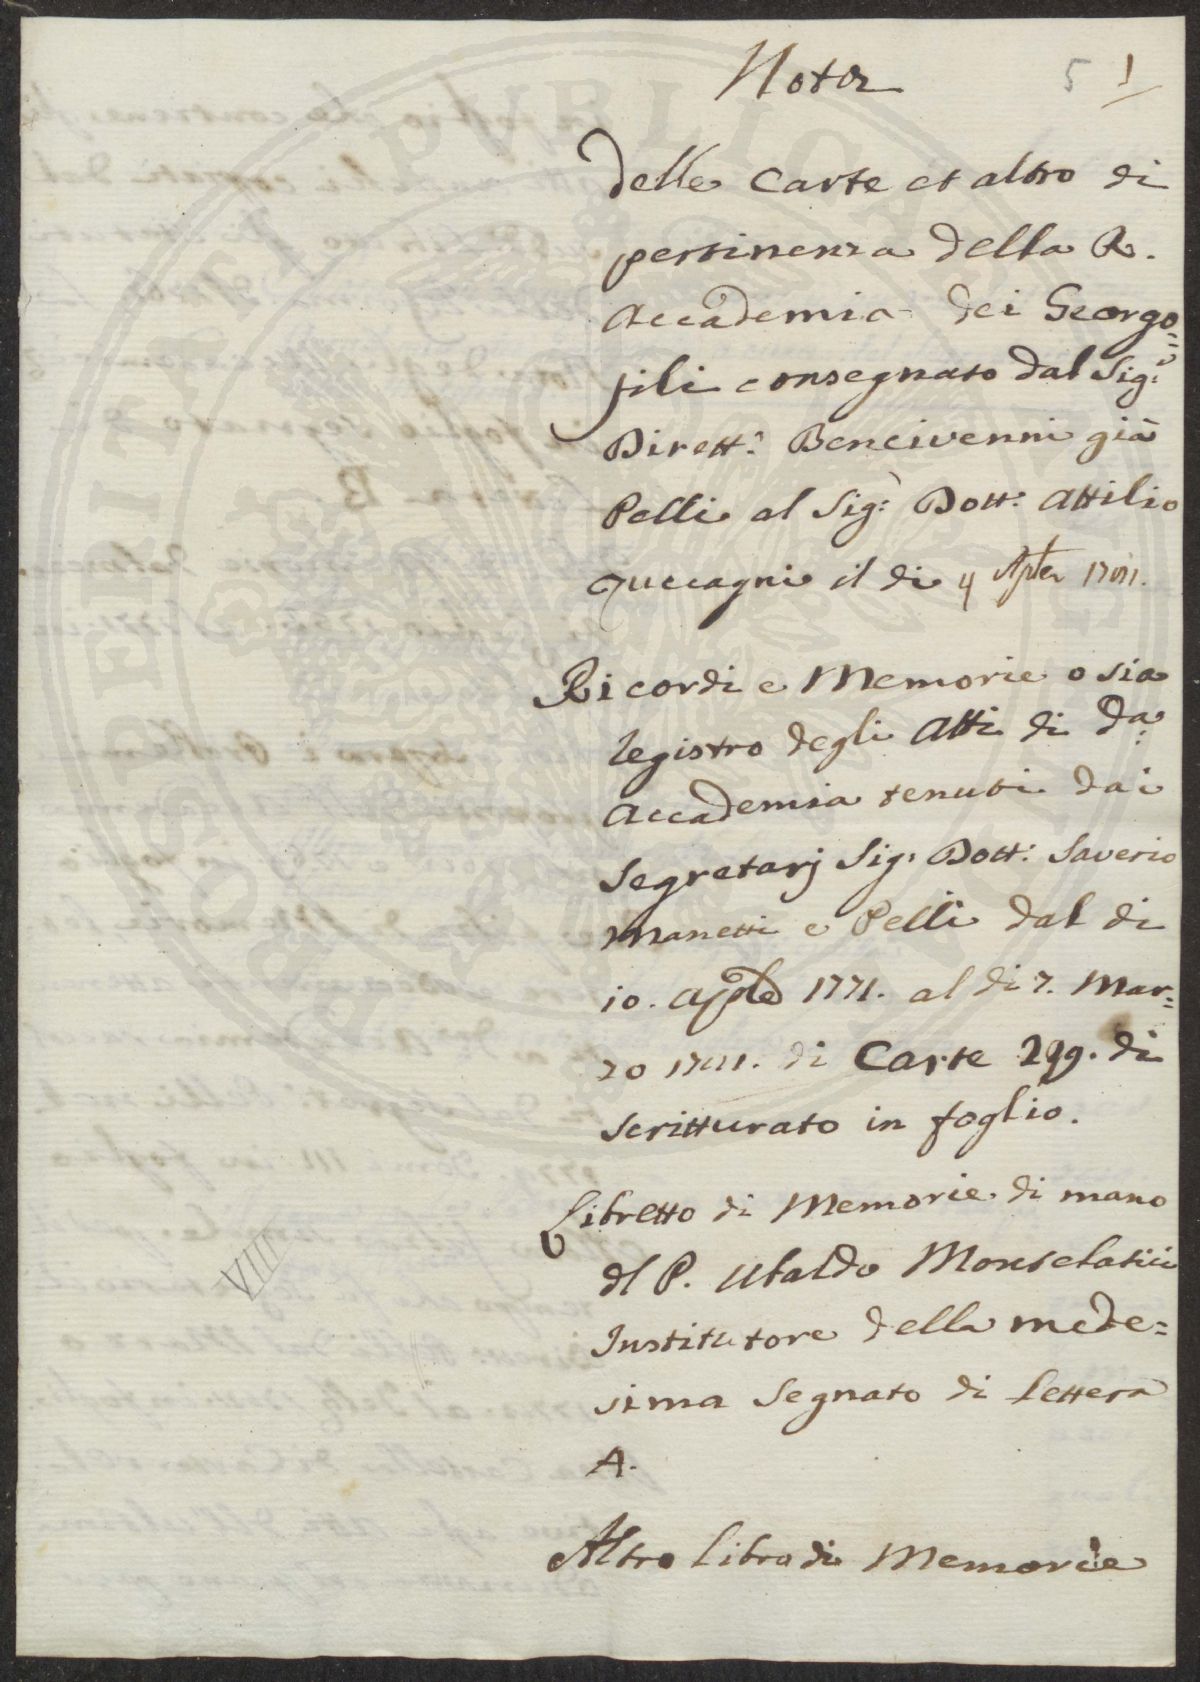 Nota
5 1
Delle Carte et altro di
pertinenza della R.
Accademia dei Georgo=
fili consegnato dal Sig:r
Dirett:e Bencivenni già
Pelli al Sig:r Dott: Attilio
Zuccagni il di 4 Aple
Ricordi e Memorie o sia
registro degli Atti di da:
Accademia tenuti dai
Segretarj Sig: Dott: Saverio
Manetti e Pelli dal di
10. Aple 1771. al di 7. Mar=
zo di Carte 299. di
scritturato in foglio.
Libretto di Memorie di mano
dl P. Ubaldo Montelatici
Institutore della mede=
sima Segnato di lettera
A.
VIII
Altro libro di Memorie
PROSPERITATI PUBLICAE AUGENDAE